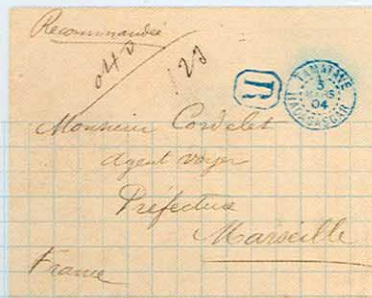 Recommandée
040
123
R
TAMATAVE
5
MARS
04
MADAGASCAR
Monsieur Cordelet
Agent voyer
Préfecture
Marseille
France